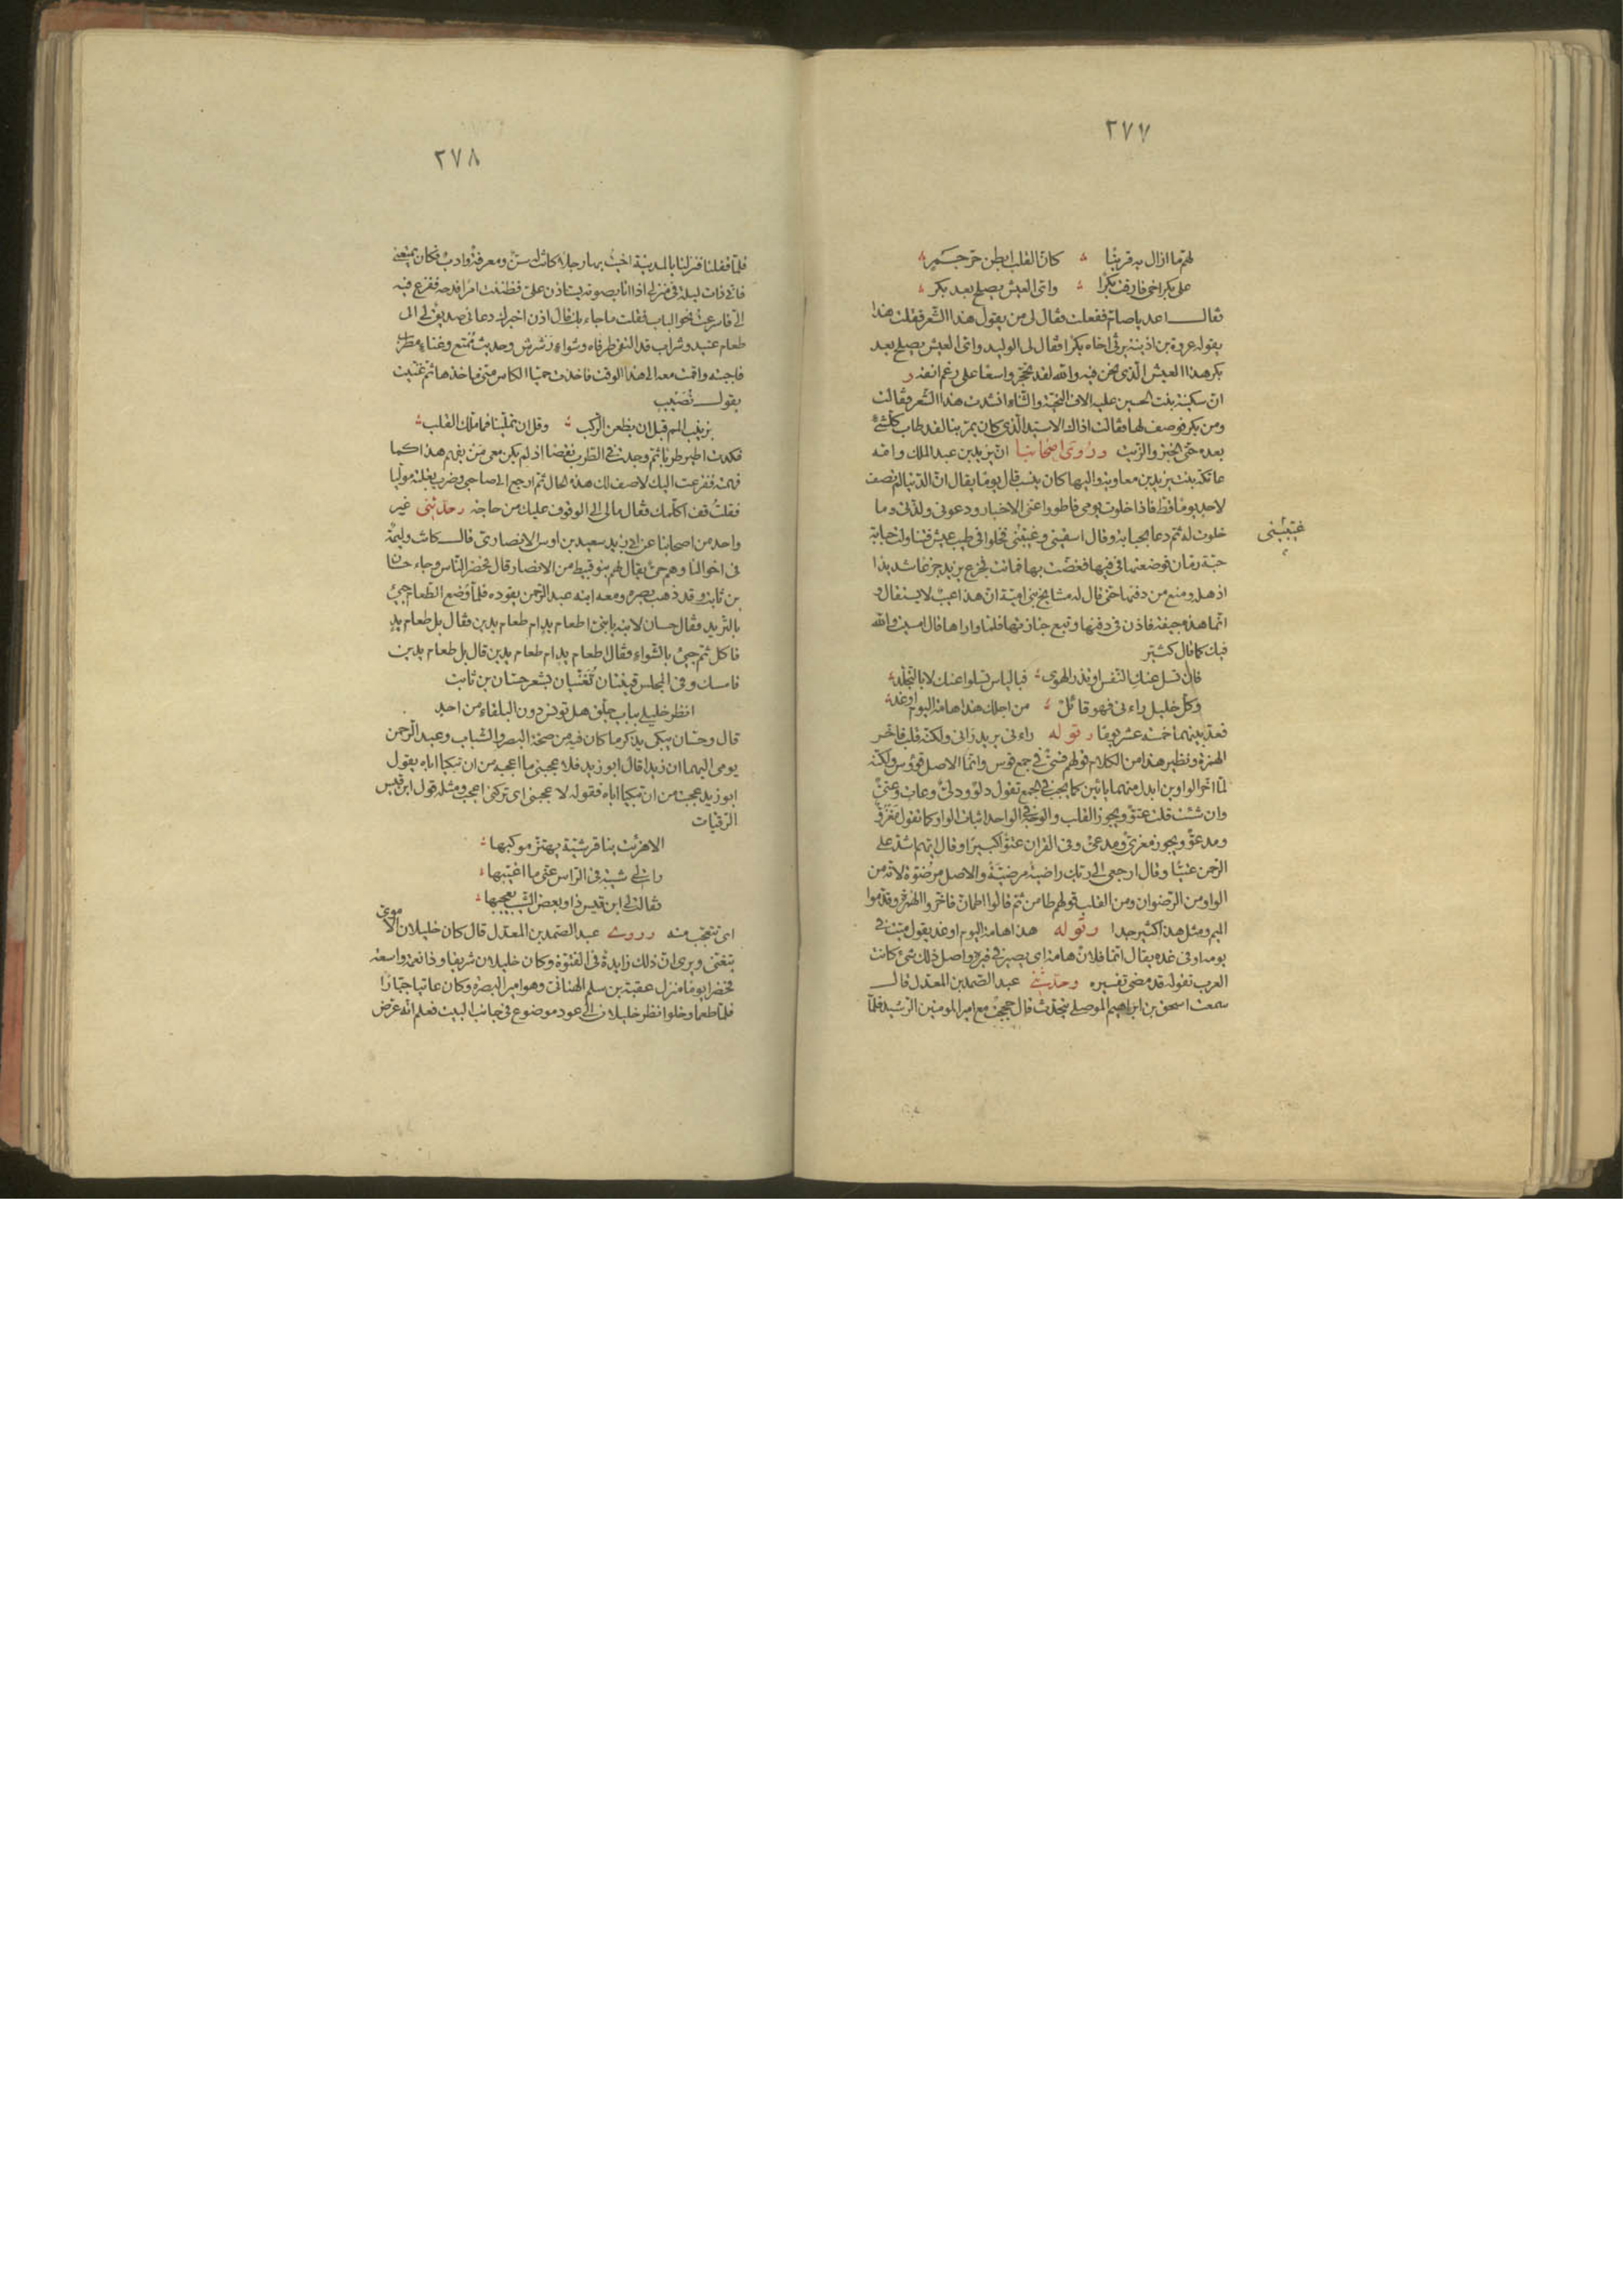 ٢٧٧
لهم ما ازال به قرينا كان القلب ابطن حر جمر
على بكر اخى فارقت بكرا واى العيش يصلح بعد بكر
فقال اعد يا صام ففعلت فقال لى من يقول هذا الشعر فقلت هذا
يقوله عروة بن اذينة يرثى اخاه بكرا فقال لى الوليد واى العيش يصلح بعد
بكر هذا العيش الذى نحن فيه والله لقد تحجر واسعا على رغم انفه و
ان سكينة بنت الحسين عليه الاف التحية والثناء انشدت هذا الشعر فقالت
ومن بكر فوصف لها فقالت اذاك الاسيد الذى كان يمر بنا لقد طاب كل شئ
بعده حتى الخبز والزيت وروى اصحابنا ان يزيد بن عبد الملك وامه
عاتكة بنت يزيد بن معاوية واليها كان ينسب قال يوما يقال ان الدنيا لم تصف
لاحد يوما قط فاذا خلوت يومى فاطووا عنى الاخبار ودعونى ولذتى وما
خلوت له ثم دعا بحبابة وقال اسقينى وغنينى فخلوا فى طيب عيش فتناولت حبابة
غنينى
حبة رمان فوضعتها فى فيها فغصت بها فماتت فجزع يزيد جزعا شديدا
اذهله ومنع من دفنها حتى قال له مشايخ بنى امية ان هذا عيب لا يستقال و
انما هذه جيفة فاذن فى دفنها وتبع جنازتها فلما واراها قال امسيت والله
فيك كما قال كثير
فان تسل عنك النفس او تذر الهوى فبالياس تسلو عنك لا بالتجلد
وكل خليل راءنى فهو قائل من اجلك هذا هامة اليوم او غد
فعد بينهما خمسة عشر يوما وقوله راءنى يريد رانى ولكنه قلب فاخر
الهمزة ونظير هذا من الكلام قولهم قسى فى جمع قوس وانما الاصل قووس ولكنه
لما اخر الواوين ابدل منهما يائين كما يجب فى الجمع تقول دلو ودلى وعات وعتى
وان شئت قلت عتو ويجوز القلب والوجه فى الواحد اثبات الواو كما تقول مغزو
ومدعو ويجوز مغزى ومدعى وفى القران عتوا كبيرا وقال ايهم اشد على
الرحمن عتيا وقال ارجعى الى ربك راضية مرضية والاصل مرضوة لانه من
الواو من الرضوان ومن القلب قولهم طامن ثم قالوا اطمان فاخروا الهمزة وقدموا
الميم ومثل هذا كثير جدا وقوله هذا هامة اليوم او غد يقول ميت فى
يومه او فى غده يقال انما فلان هامة اى يصير فى قبره واصل ذلك شئ كانت
العرب تقوله قد مضى تفسيره وحدثنى عبد الصمد بن المعدل قال
سمعت اسحق بن ابراهيم الموصلى يتحدث قال حججت مع امير المومنين الرشيد فلما
٢٧٨
فلما قفلنا فنزلنا بالمدينة اخيت بها رجلا كانت له سن ومعرفة وادب فكان يمتعنى
فانى ذات ليلة فى منزلى اذا انا بصوته يستاذن على فظننت امرا فدحه ففزع فيه
الى فاسرعت نحو الباب فقلت ما جاء بك قال اذن اخبرك دعانى صديق لى الى
طعام عتيد وشراب قد التقى طرفاه وشواء رشرش وحديث ممتع وغناء مطرب
فاجبته واقمت معه الى هذا الوقت فاخذت حميا الكاس منى ماخذها ثم غنيت
بقول نصيب
بزينب المم قبل ان يظعن الركب وقل ان تملينا فما ملك القلب
فكدت اطير طربا ثم وجدت فى الطرب نقصا اذ لم يكن معى من يفهم هذا كما
فهمته ففزعت اليك لاصف لك هذه الحال ثم ارجع الى صاحبى وضرب بغلته موليا
فقلت قف اكلمك فقال ما بى الى الوقوف عليك من حاجة وحدثنى غير
واحد من اصحابنا عن ابى زيد سعيد بن اوس الانصارى قال كانت وليمة
فى اخوالنا وهم حى يقال لهم بنو قبيط من الانصار قال فحضر الناس وجاء حسان
بن ثابت وقد ذهب بصره ومعه ابنه عبد الرحمن يقوده فلما وضع الطعام جيئ
بالثريد وقال حسان لابنه يا بنى اطعام يد ام طعام يدين فقال بل طعام يد
فاكل ثم جيئ بالشواء فقال اطعام يد ام طعام يدين قال بل طعام يدين
فامسك وفى المجلس قينتان تغنيان بشعر حسان بن ثابت
انظر خليلى بباب جلق هل تونس دون البلقاء من احد
قال وحسان يبكى يذكر ما كان فيه من صحة البصر والشباب وعبد الرحمن
يومى اليهما ان زيدا قال ابو زيد فلا عجبنى ما اعجبه من ان تبكيا اباه يقول
ابو زيد عجبت من ان تبكيا اباه فقوله لا عجبنى اى تركنى اعجب ومثله قول ابن قيس
الرقيات
الا هزئت بنا قرشية يهتز موكبها
رات لى شيبة فى الراس عنى ما اغيبها
فقالت لى ابن قيس ذا وبعض الشيب يعجبها
اى تتعجب منه وروى عبد الصمد بن المعدل قال كان خليلان الاموى
يتغنى ويرى ان ذلك زايدة فى الفتوة وكان خليلان شريفا وذا نعمة واسعة
فحضر يوما منزل عقبة بن سلم الهنائى وهو امير البصرة وكان عاتيا جبارا
فلما طعما وخلوا نظر خليلان الى عود موضوع فى جانب البيت فعلم انه عرض